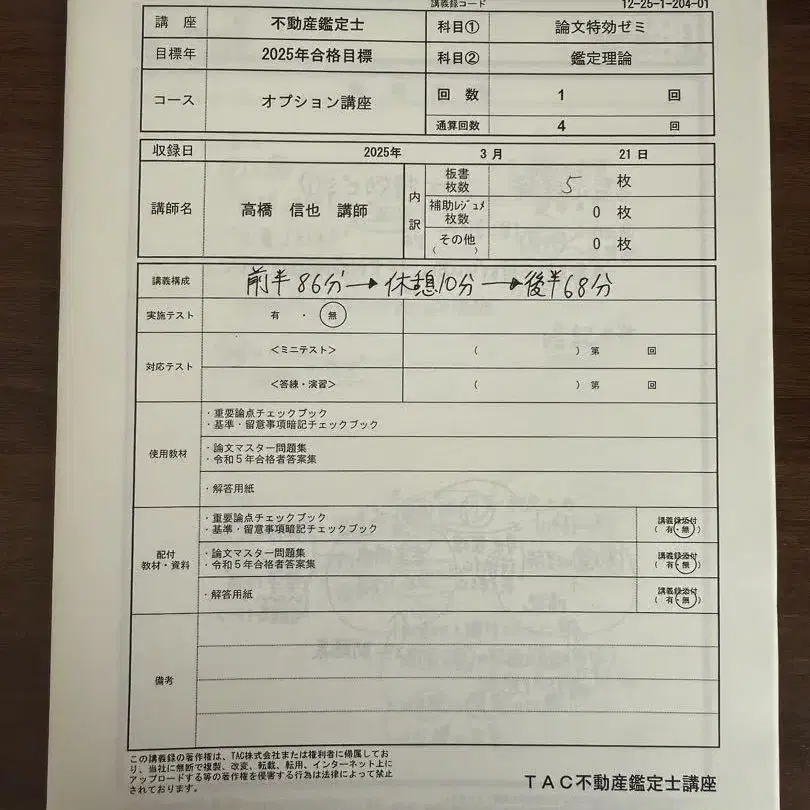 講義録コード 12-25-1-204-01
講 座 不動産鑑定士 科目① 論文特効ゼミ
目標年 2025年合格目標 科目② 鑑定理論
コース オプション講座 回 数 1 回
通算回数 4 回
収録日 2025年 3 月 21 日
講師名 高橋 信也 講師 内訳 板書枚数 5 枚
補助レジュメ枚数 0 枚
その他 ( ) 0 枚
講義構成 前半 86分 → 休憩10分 → 後半68分
実施テスト 有 ・ 無
対応テスト <ミニテスト> ( ) 第 回
<答練・演習> ( ) 第 回
使用教材
・重要論点チェックブック
・基準・留意事項暗記チェックブック
・論文マスター問題集
・令和5年合格者答案集
・解答用紙
配付教材・資料
・重要論点チェックブック
・基準・留意事項暗記チェックブック
講義録添付 ( 有・無 )
・論文マスター問題集
・令和5年合格者答案集
講義録添付 ( 有・無 )
・解答用紙
講義録添付 ( 有・無 )
備考
この講義録の著作権は、TAC株式会社または権利者に帰属してお
り、当社に無断で複製、改変、転載、転用、インターネット上に
アップロードする等の著作権を侵害する行為は法律によって禁止
されております。
TAC不動産鑑定士講座